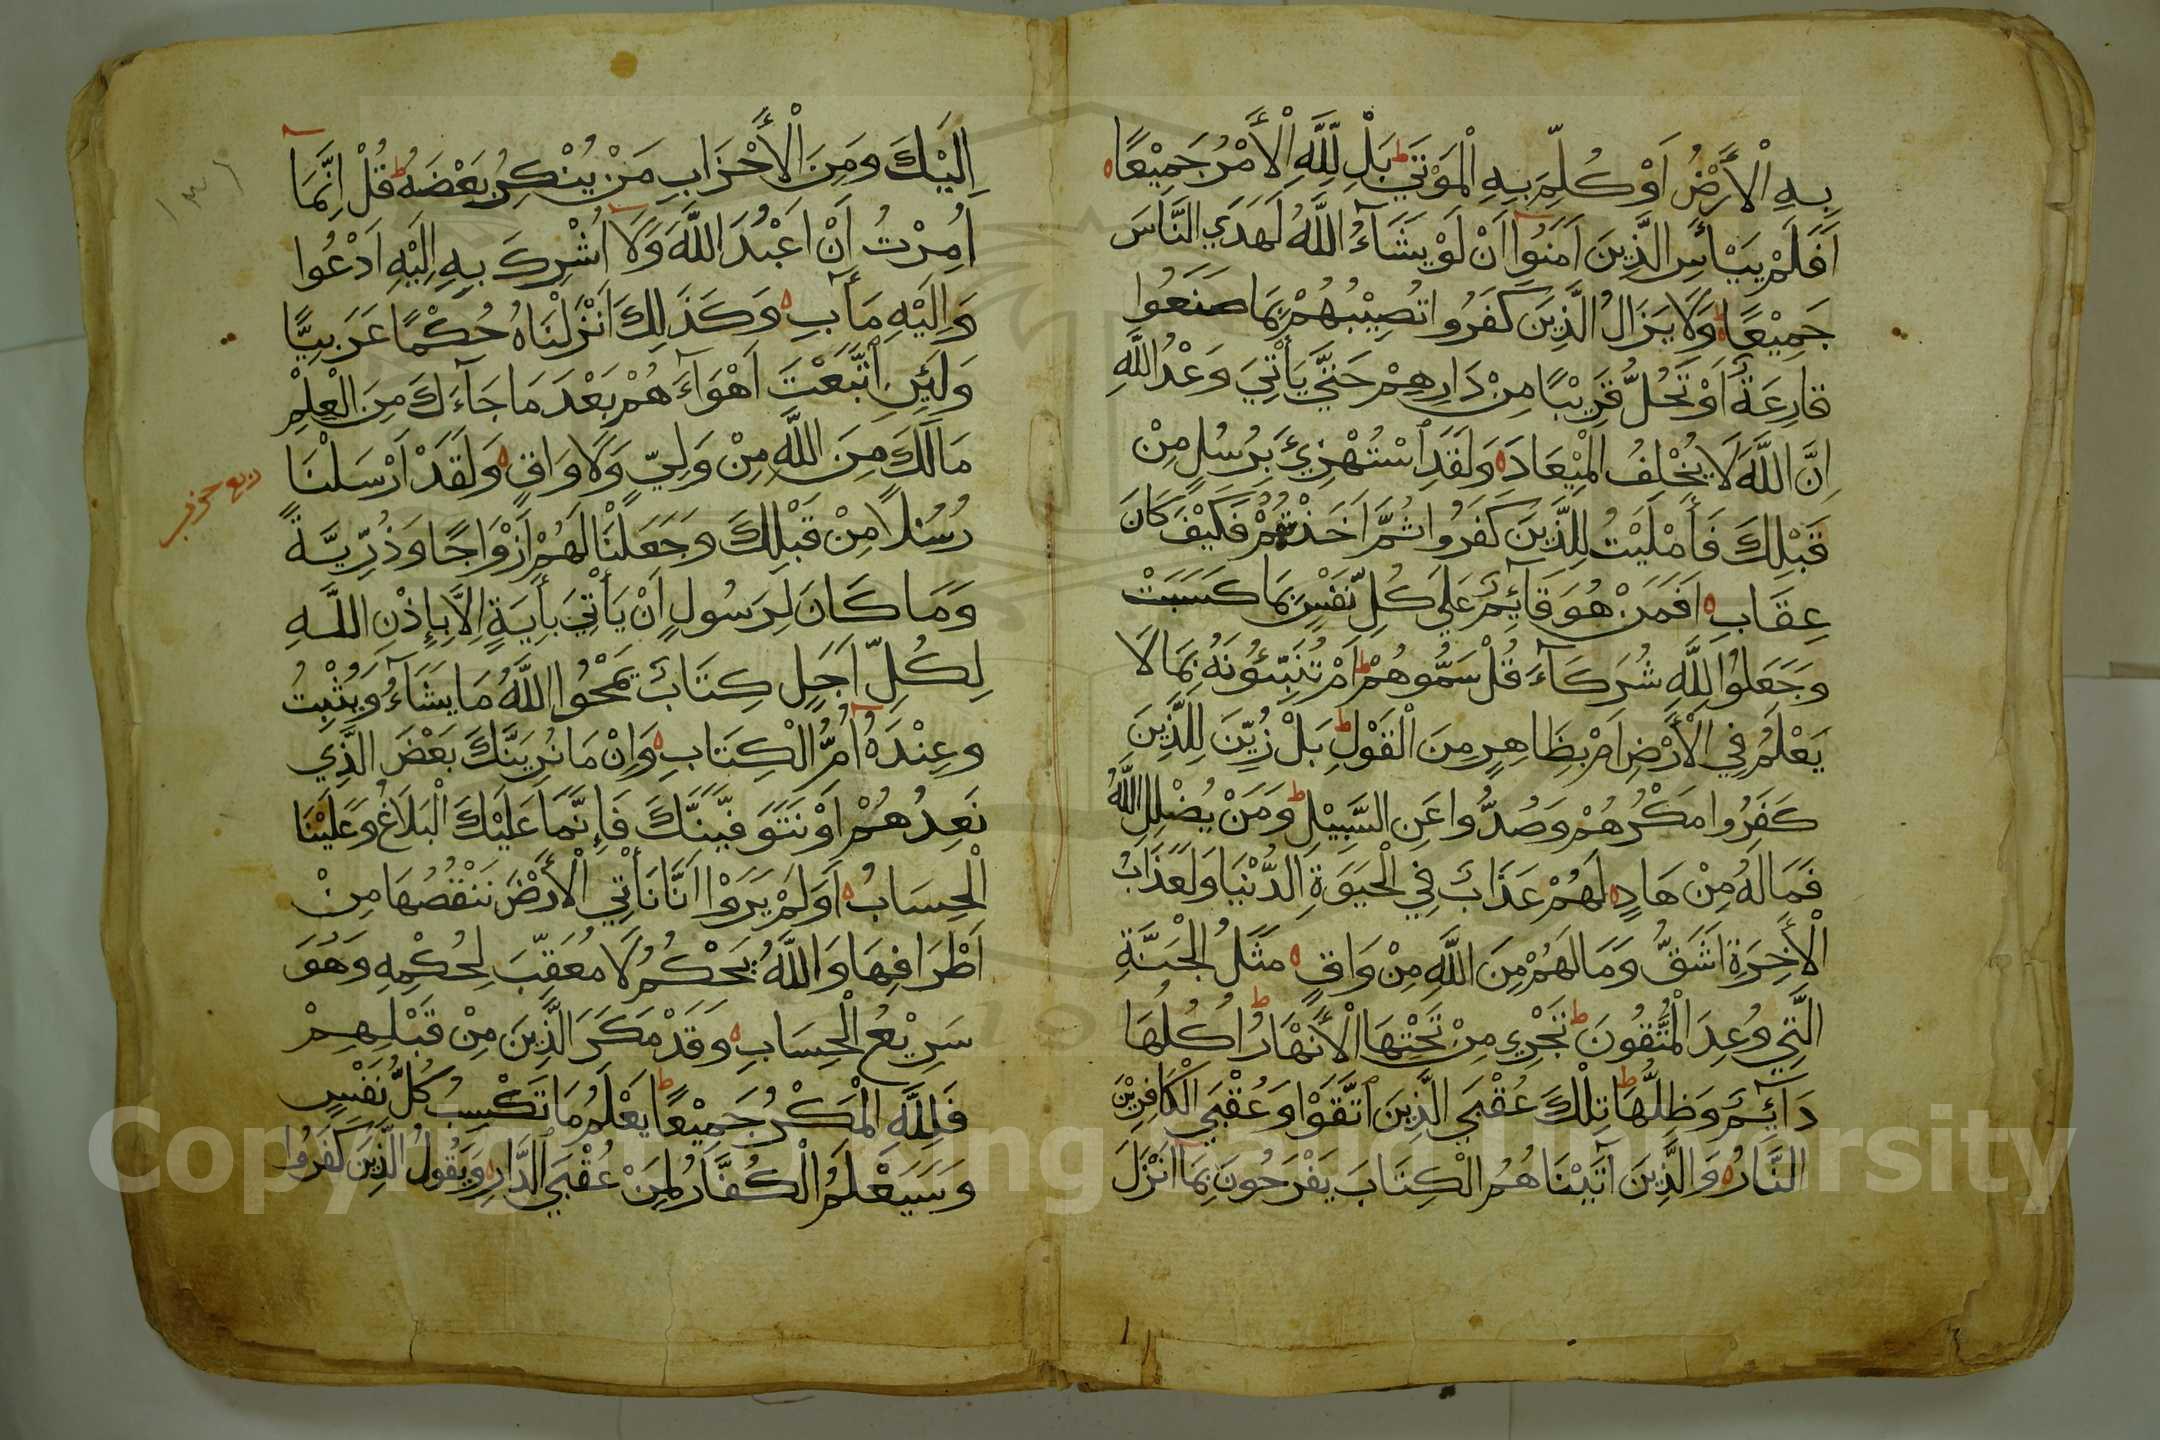 بِهِ الْأَرْضُ اَوْ كُلِّمَ بِهِ الْمَوْتَي ط بَلْ لِلَّهِ الْأَمْرُ جَمِيْعًا ه
اَفَلَمْ يَيْأَسِ الَّذِينَ اٰمَنُوا اَنْ لَوْ يَشَآءُ اللَّهُ لَهَدَي النَّاسَ
جَمِيْعًا ه وَلَا يَزَالُ الَّذِينَ كَفَرُوا تُصِيْبُهُمْ بِمَا صَنَعُوا
قَارِعَةٌ اَوْ تَحُلُّ قَرِيْبًا مِنْ دَارِهِمْ حَتَّي يَأْتِيَ وَعْدُ اللَّهِ
اِنَّ اللَّهَ لَا يُخْلِفُ الْمِيْعَادَ ه وَلَقَدِ اسْتُهْزِئَ بِرُسُلٍ مِنْ
قَبْلِكَ فَأَمْلَيْتُ لِلَّذِينَ كَفَرُوا ثُمَّ اَخَذْتُهُمْ فَكَيْفَ كَانَ
عِقَابِ ه اَفَمَنْ هُوَ قَآئِمٌ عَلَي كُلِّ نَفْسٍ بِمَا كَسَبَتْ
وَجَعَلُوا لِلَّهِ شُرَكَآءَ قُلْ سَمُّوهُمْ ط اَمْ تُنَبِّئُونَهُ بِمَا لَا
يَعْلَمُ فِي الْأَرْضِ اَمْ بِظَاهِرٍ مِنَ الْقَوْلِ ط بَلْ زُيِّنَ لِلَّذِينَ
كَفَرُوا مَكْرُهُمْ وَصُدُّوا عَنِ السَّبِيْلِ ط وَمَنْ يُضْلِلِ اللَّهُ
فَمَا لَهُ مِنْ هَادٍ ه لَهُمْ عَذَابٌ فِي الْحَيَوةِ الدُّنْيَا وَلَعَذَابُ
الْأَخِرَةِ اَشَقُّ وَمَا لَهُمْ مِنَ اللَّهِ مِنْ وَاقٍ ه مَثَلُ الْجَنَّةِ
الَّتِي وُعِدَ الْمُتَّقُونَ ط تَجْرِي مِنْ تَحْتِهَا الْأَنْهَارُ ط اُكُلُهَا
دَآئِمٌ وَظِلُّهَا ط تِلْكَ عُقْبَي الَّذِينَ اتَّقَوْا وَعُقْبَي الْكَافِرِيْنَ
النَّارُ ه وَالَّذِينَ آتَيْنَاهُمُ الْكِتَابَ يَفْرَحُونَ بِمَا اُنْزِلَ
اِلَيْكَ وَمِنَ الْأَحْزَابِ مَنْ يُنْكِرُ بَعْضَهُ ط قُلْ اِنَّمَآ
اُمِرْتُ اَنْ اَعْبُدَ اللَّهَ وَلَآ اُشْرِكَ بِهِ اِلَيْهِ اَدْعُوا
وَاِلَيْهِ مَأٰبِ ه وَكَذَلِكَ اَنْزَلْنَاهُ حُكْمًا عَرَبِيًّا
وَلَئِنِ اتَّبَعْتَ اَهْوَآءَهُمْ بَعْدَ مَا جَآءَكَ مِنَ الْعِلْمِ
مَالَكَ مِنَ اللَّهِ مِنْ وَلِيٍّ وَلَا وَاقٍ ه وَلَقَدْ اَرْسَلْنَا
ربع حزب
رُسُلًا مِنْ قَبْلِكَ وَجَعَلْنَا لَهُمْ اَزْوَاجًا وَذُرِّيَّةً
وَمَا كَانَ لِرَسُولٍ اَنْ يَأْتِيَ بِأَيَةٍ اِلَّا بِإِذْنِ اللَّهِ
لِكُلِّ اَجَلٍ كِتَابٌ يَمْحُوا اللَّهُ مَا يَشَآءُ وَيُثْبِتُ
وَعِنْدَهُ اُمُّ الْكِتَابِ ه وَاِنْ مَا نُرِيَنَّكَ بَعْضَ الَّذِي
نَعِدُهُمْ اَوْ نَتَوَفَّيَنَّكَ فَاِنَّمَا عَلَيْكَ الْبَلَاغُ وَعَلَيْنَا
الْحِسَابُ ه اَوَلَمْ يَرَوْا اَنَّا نَأْتِي الْأَرْضَ نَنْقُصُهَا مِنْ
اَطْرَافِهَا وَاللَّهُ يَحْكُمُ لَا مُعَقِّبَ لِحُكْمِهِ وَهُوَ
سَرِيْعُ الْحِسَابِ ه وَقَدْ مَكَرَ الَّذِينَ مِنْ قَبْلِهِمْ
فَلِلَّهِ الْمَكْرُ جَمِيْعًا ط يَعْلَمُ مَا تَكْسِبُ كُلُّ نَفْسٍ
وَسَيَعْلَمُ الْكُفَّارُ لِمَنْ عُقْبَي الدَّارِ ه وَيَقُولُ الَّذِينَ كَفَرُوا
Copyright © King Saud University